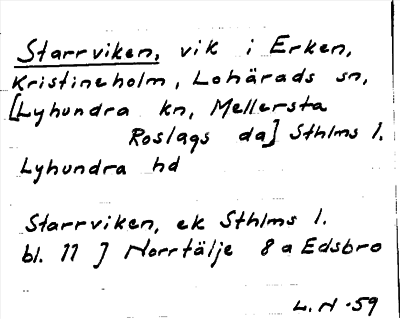 Starrviken, vik i Erken,
Kristineholm, Lohärads sn,
[Lyhundra kn, Mellersta
Roslags da] Sthlms l.
Lyhundra hd
Starrviken, ek Sthlms l.
bl. 11 ] Norrtälje 8a Edsbro
L. N -59